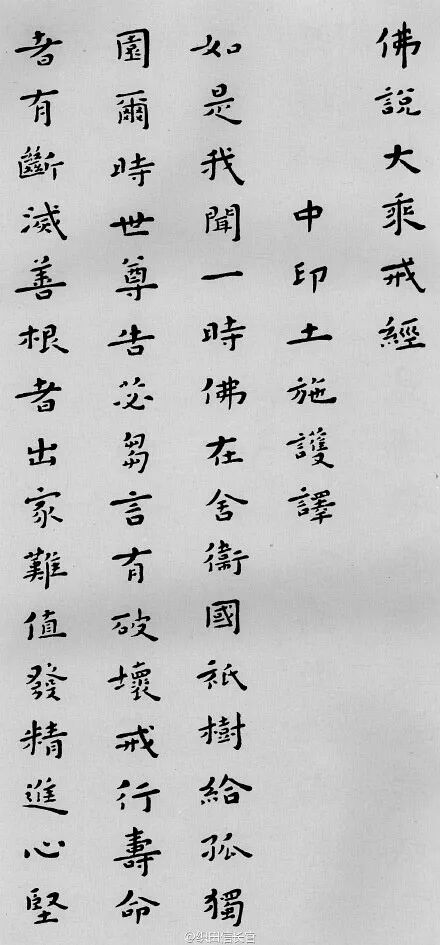 佛說大乘戒經
中印土施護譯
如是我聞一時佛在舍衛國祇樹給孤獨
園爾時世尊告苾芻言有破壞戒行壽命
者有斷滅善根者出家難值發精進心堅
@织田信长官